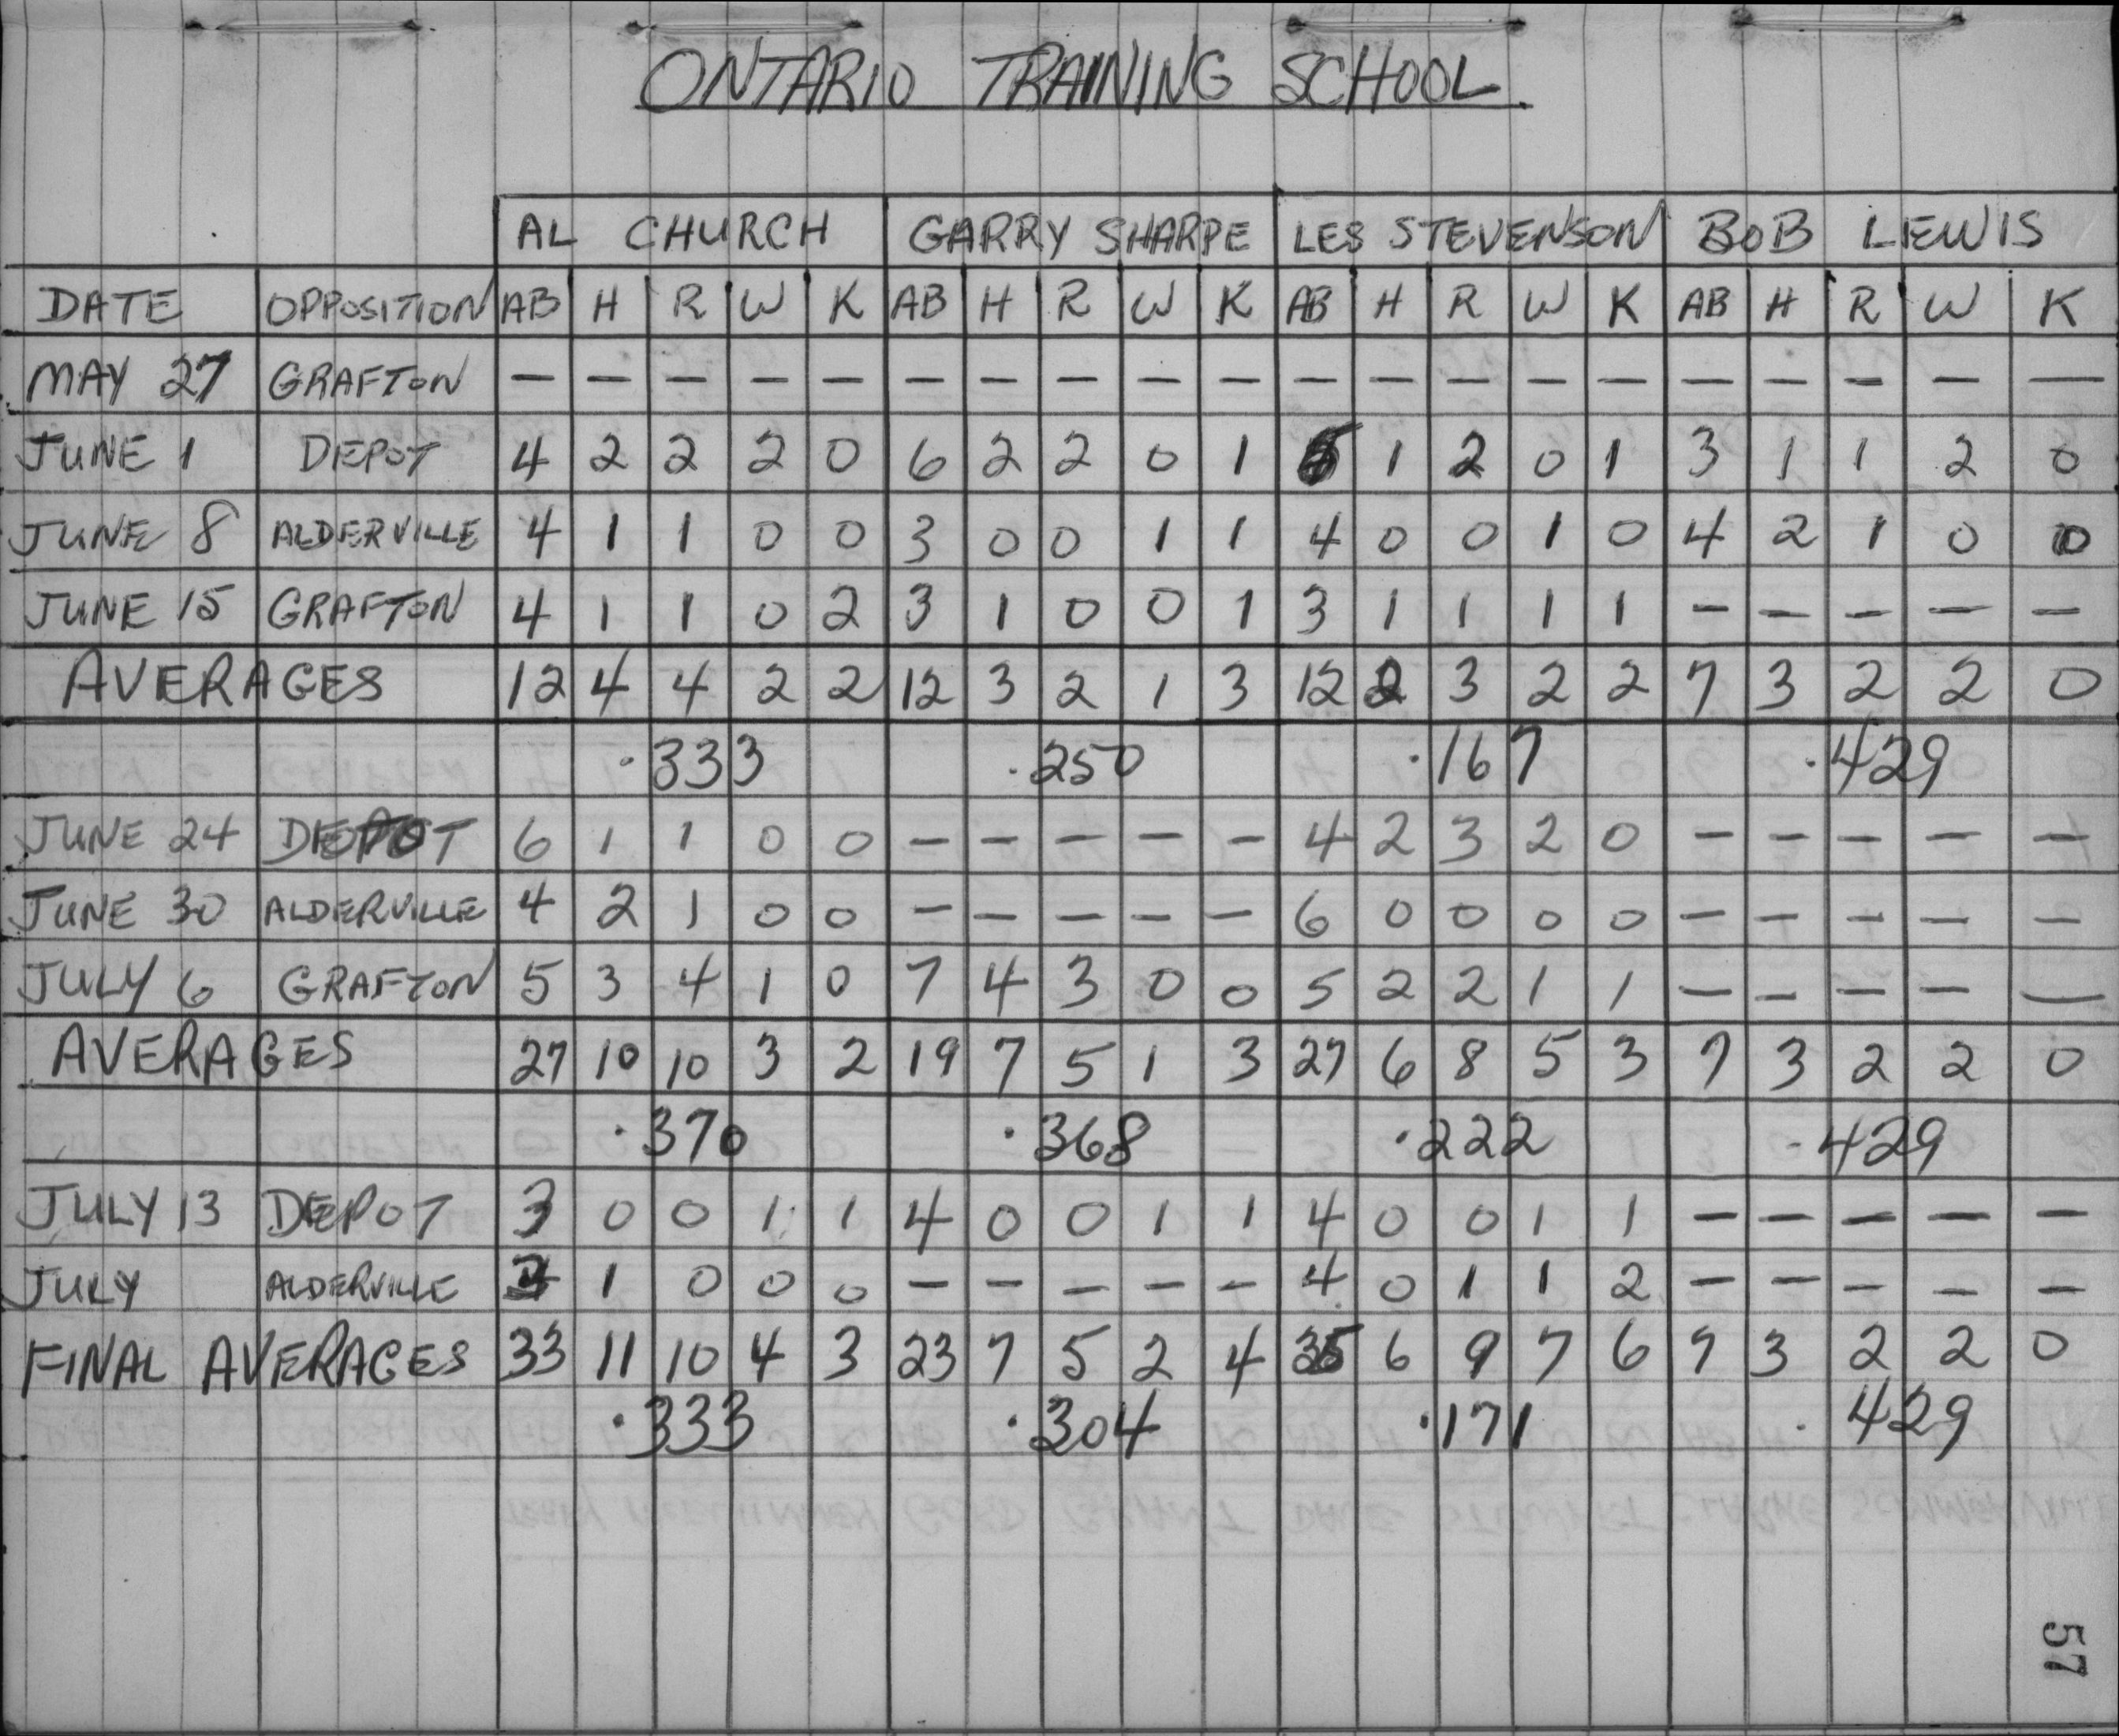 ONTARIO TRAINING SCHOOL
AL CHURCH GARRY SHARPE LES STEVENSON BOB LEWIS
DATE OPPOSITION AB H R W K AB H R W K AB H R W K AB H R W K
MAY 27 GRAFTON — — — — — — — — — — — — — — — — — — — —
JUNE 1 DEPOT 4 2 2 2 0 6 2 2 0 1 5 1 2 0 1 3 1 1 2 0
JUNE 8 ALDERVILLE 4 1 1 0 0 3 0 0 1 1 4 0 0 1 0 4 2 1 0 0
JUNE 15 GRAFTON 4 1 1 0 2 3 1 0 0 1 3 1 1 1 1 — — — — —
AVERAGES 12 4 4 2 2 12 3 2 1 3 12 2 3 2 2 7 3 2 2 0
.333 .250 .167 .429
JUNE 24 DEPOT 6 1 1 0 0 — — — — — 4 2 3 2 0 — — — — —
JUNE 30 ALDERVILLE 4 2 1 0 0 — — — — — 6 0 0 0 0 — — — — —
JULY 6 GRAFTON 5 3 4 1 0 7 4 3 0 0 5 2 2 1 1 — — — — —
AVERAGES 27 10 10 3 2 19 7 5 1 3 27 6 8 5 3 7 3 2 2 0
.370 .368 .222 .429
JULY 13 DEPOT 3 0 0 1 1 4 0 0 1 1 4 0 0 1 1 — — — — —
JULY ALDERVILLE 3 1 0 0 0 — — — — — 4 0 1 1 2 — — — — —
FINAL AVERAGES 33 11 10 4 3 23 7 5 2 4 35 6 9 7 6 7 3 2 2 0
.333 .304 .171 .429
57